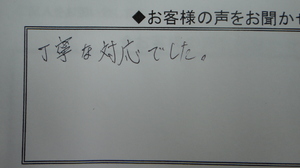 ◆お客様の声をお聞かせ
丁寧な対応でした。